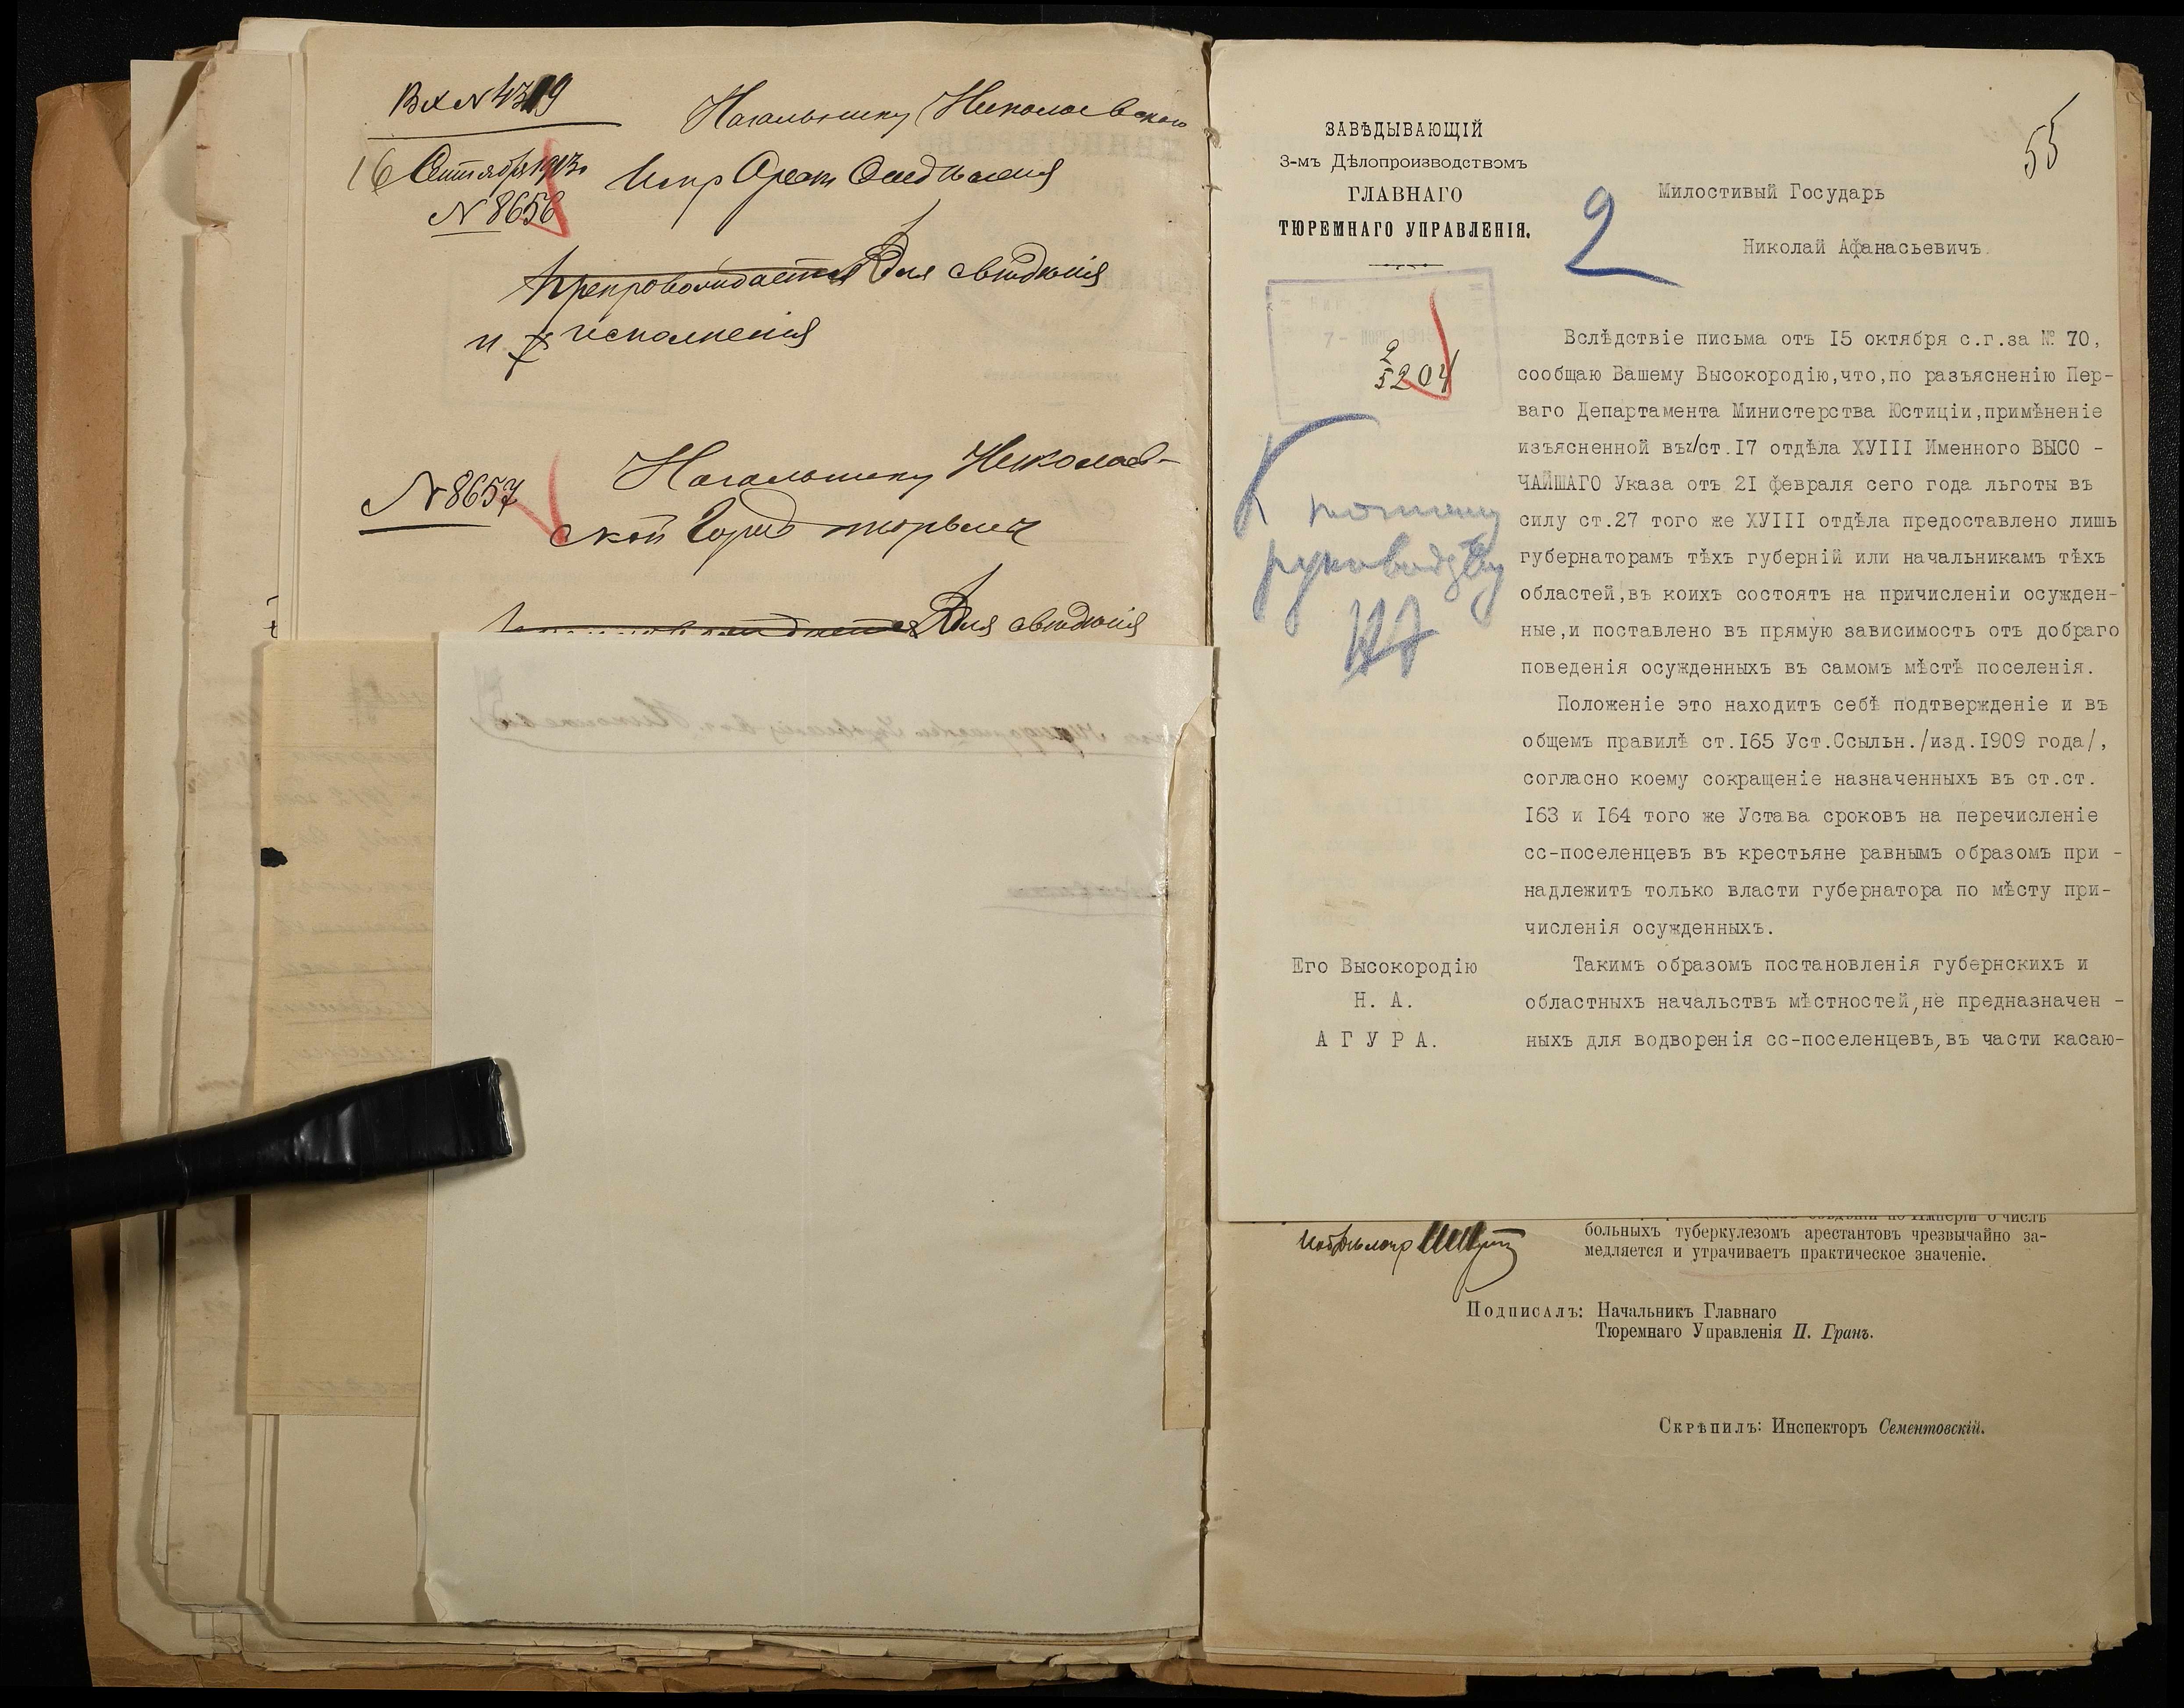 Вх № 4319
16 Сентября 1913 г.
№ 8656
Начальнику Николаевскаго
Испр Арест Отделенія
Препровождается Для сведенія
и исполненія
№ 8657
Начальнику Николаев-
ской Город тюрьмы
Для сведенія
55
ЗАВѢДЫВАЮЩІЙ
3-мъ Дѣлопроизводствомъ
ГЛАВНАГО
ТЮРЕМНАГО УПРАВЛЕНІЯ.
2
5204
К
руководству
Милостивый Государь
Николай Афанасьевичъ.
Вслѣдствіе письма отъ I5 октября с.г.за № 70,
сообщаю Вашему Высокородію,что,по разъясненію Пер-
ваго Департамента Министерства Юстиціи,примѣненіе
изъясненной въ ст.I7 отдѣла ХУIII Именного ВЫСО -
ЧАЙШАГО Указа отъ 2I февраля сего года льготы въ
силу ст.27 того же ХУIII отдѣла предоставлено лишь
губернаторамъ тѣхъ губерній или начальникамъ тѣхъ
областей,въ коихъ состоятъ на причисленіи осужден-
ные,и поставлено въ прямую зависимость отъ добраго
поведенія осужденныхъ въ самомъ мѣстѣ поселенія.
Положеніе это находитъ себѣ подтвержденіе и въ
общемъ правилѣ ст.I65 Уст.Ссыльн./изд.I909 года/,
согласно коему сокращеніе назначенныхъ въ ст.ст.
I63 и I64 того же Устава сроковъ на перечисленіе
сс-поселенцевъ въ крестьяне равнымъ образомъ при -
надлежитъ только власти губернатора по мѣсту при-
численія осужденныхъ.
Такимъ образомъ постановленія губернскихъ и
областныхъ начальствъ мѣстностей,не предназначен -
ныхъ для водворенія сс-поселенцевъ,въ части касаю-
Его Высокородію
Н. А.
А Г У Р А.
больныхъ туберкулезомъ арестантовъ чрезвычайно за-
медляется и утрачиваетъ практическое значеніе.
Подписалъ: Начальникъ Главнаго
Тюремнаго Управленія П. Гранъ.
Скрѣпилъ: Инспекторъ Сементовскій.